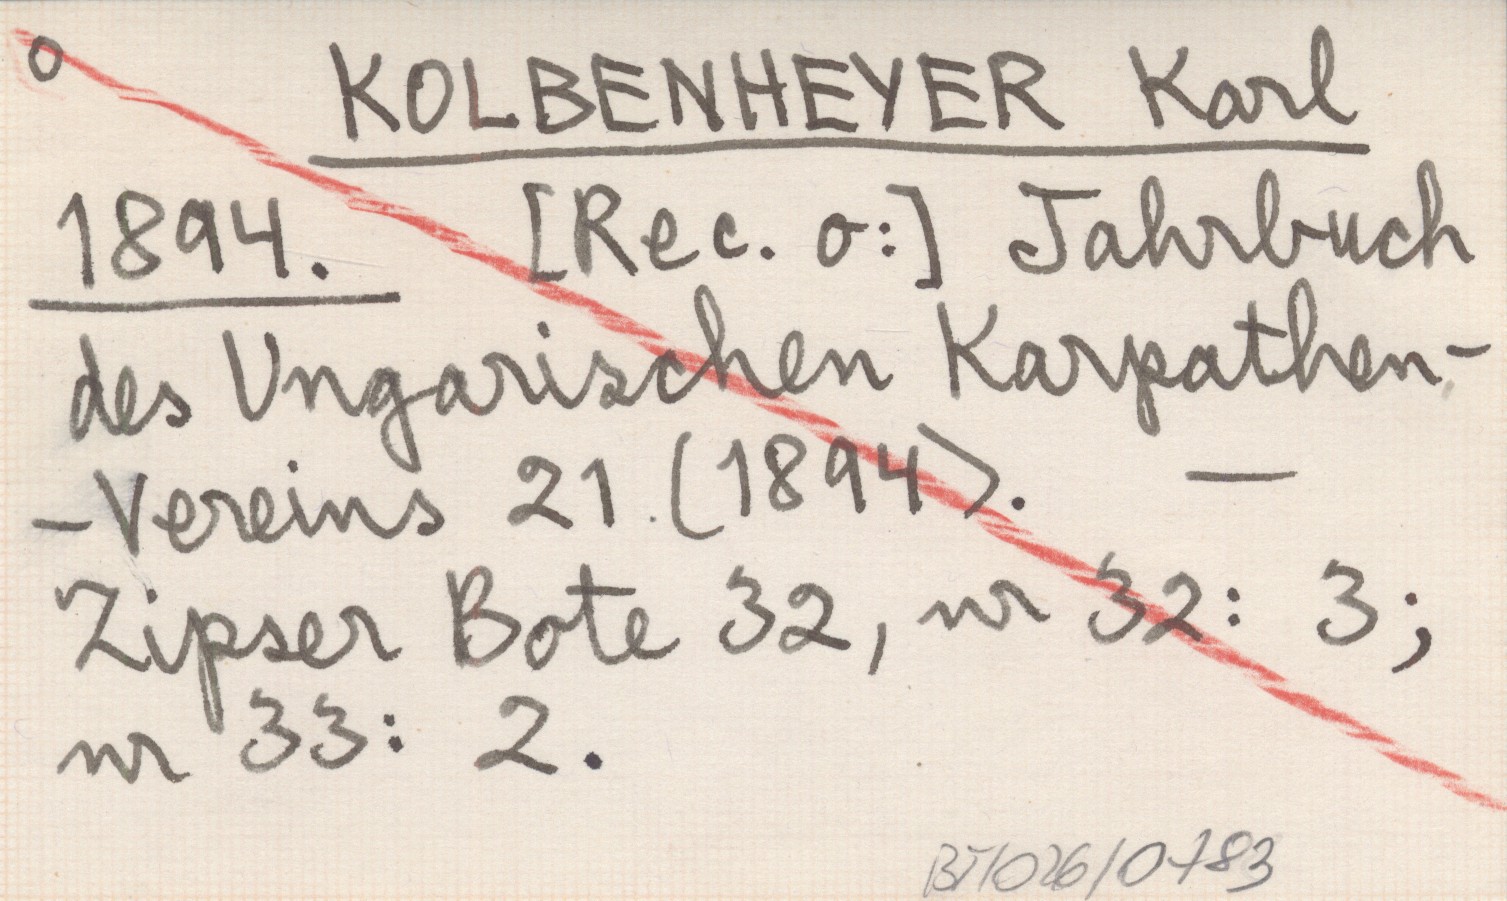 o KOLBENHEYER Karl
1894. [Rec. o:] Jahrbuch
des Ungarischen Karpathen-
-Vereins 21 (1894). —
Zipser Bote 32, nr 32: 3;
nr 33: 2.
BT/026/0783